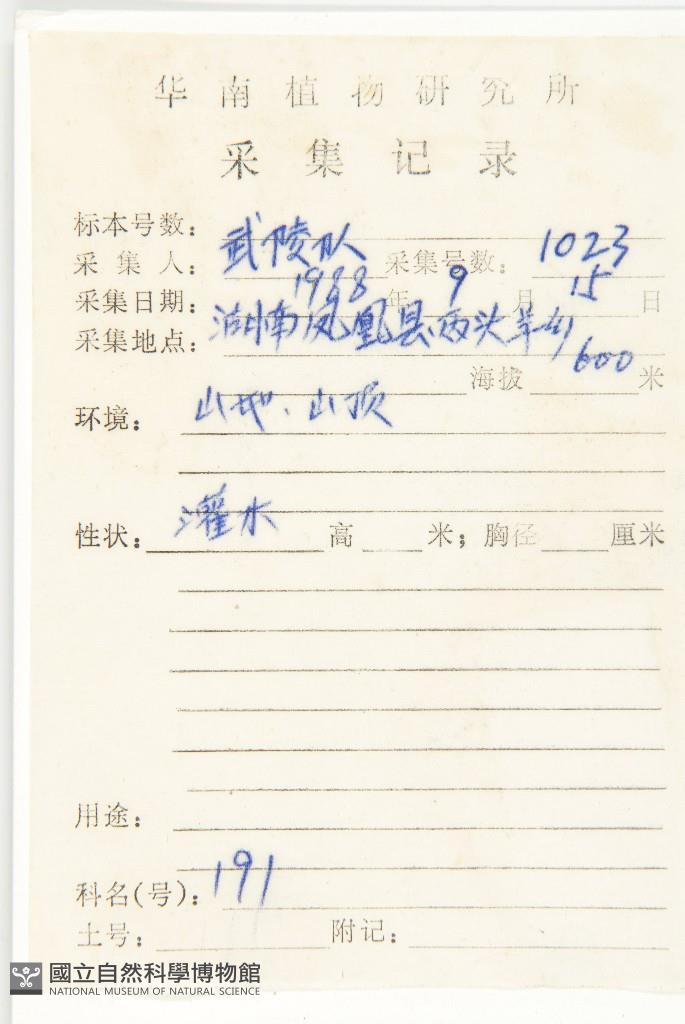 华南植物研究所
采集记录
标本号数：
采集人：武陵队 采集号数：1023
采集日期：1988年9月15日
采集地点：湖南凤凰县两头羊乡
海拔600米
环境：山地、山顶
性状：灌木 高 米；胸径 厘米
用途：
科名(号)：191
土号： 附记：
國立自然科學博物館
NATIONAL MUSEUM OF NATURAL SCIENCE